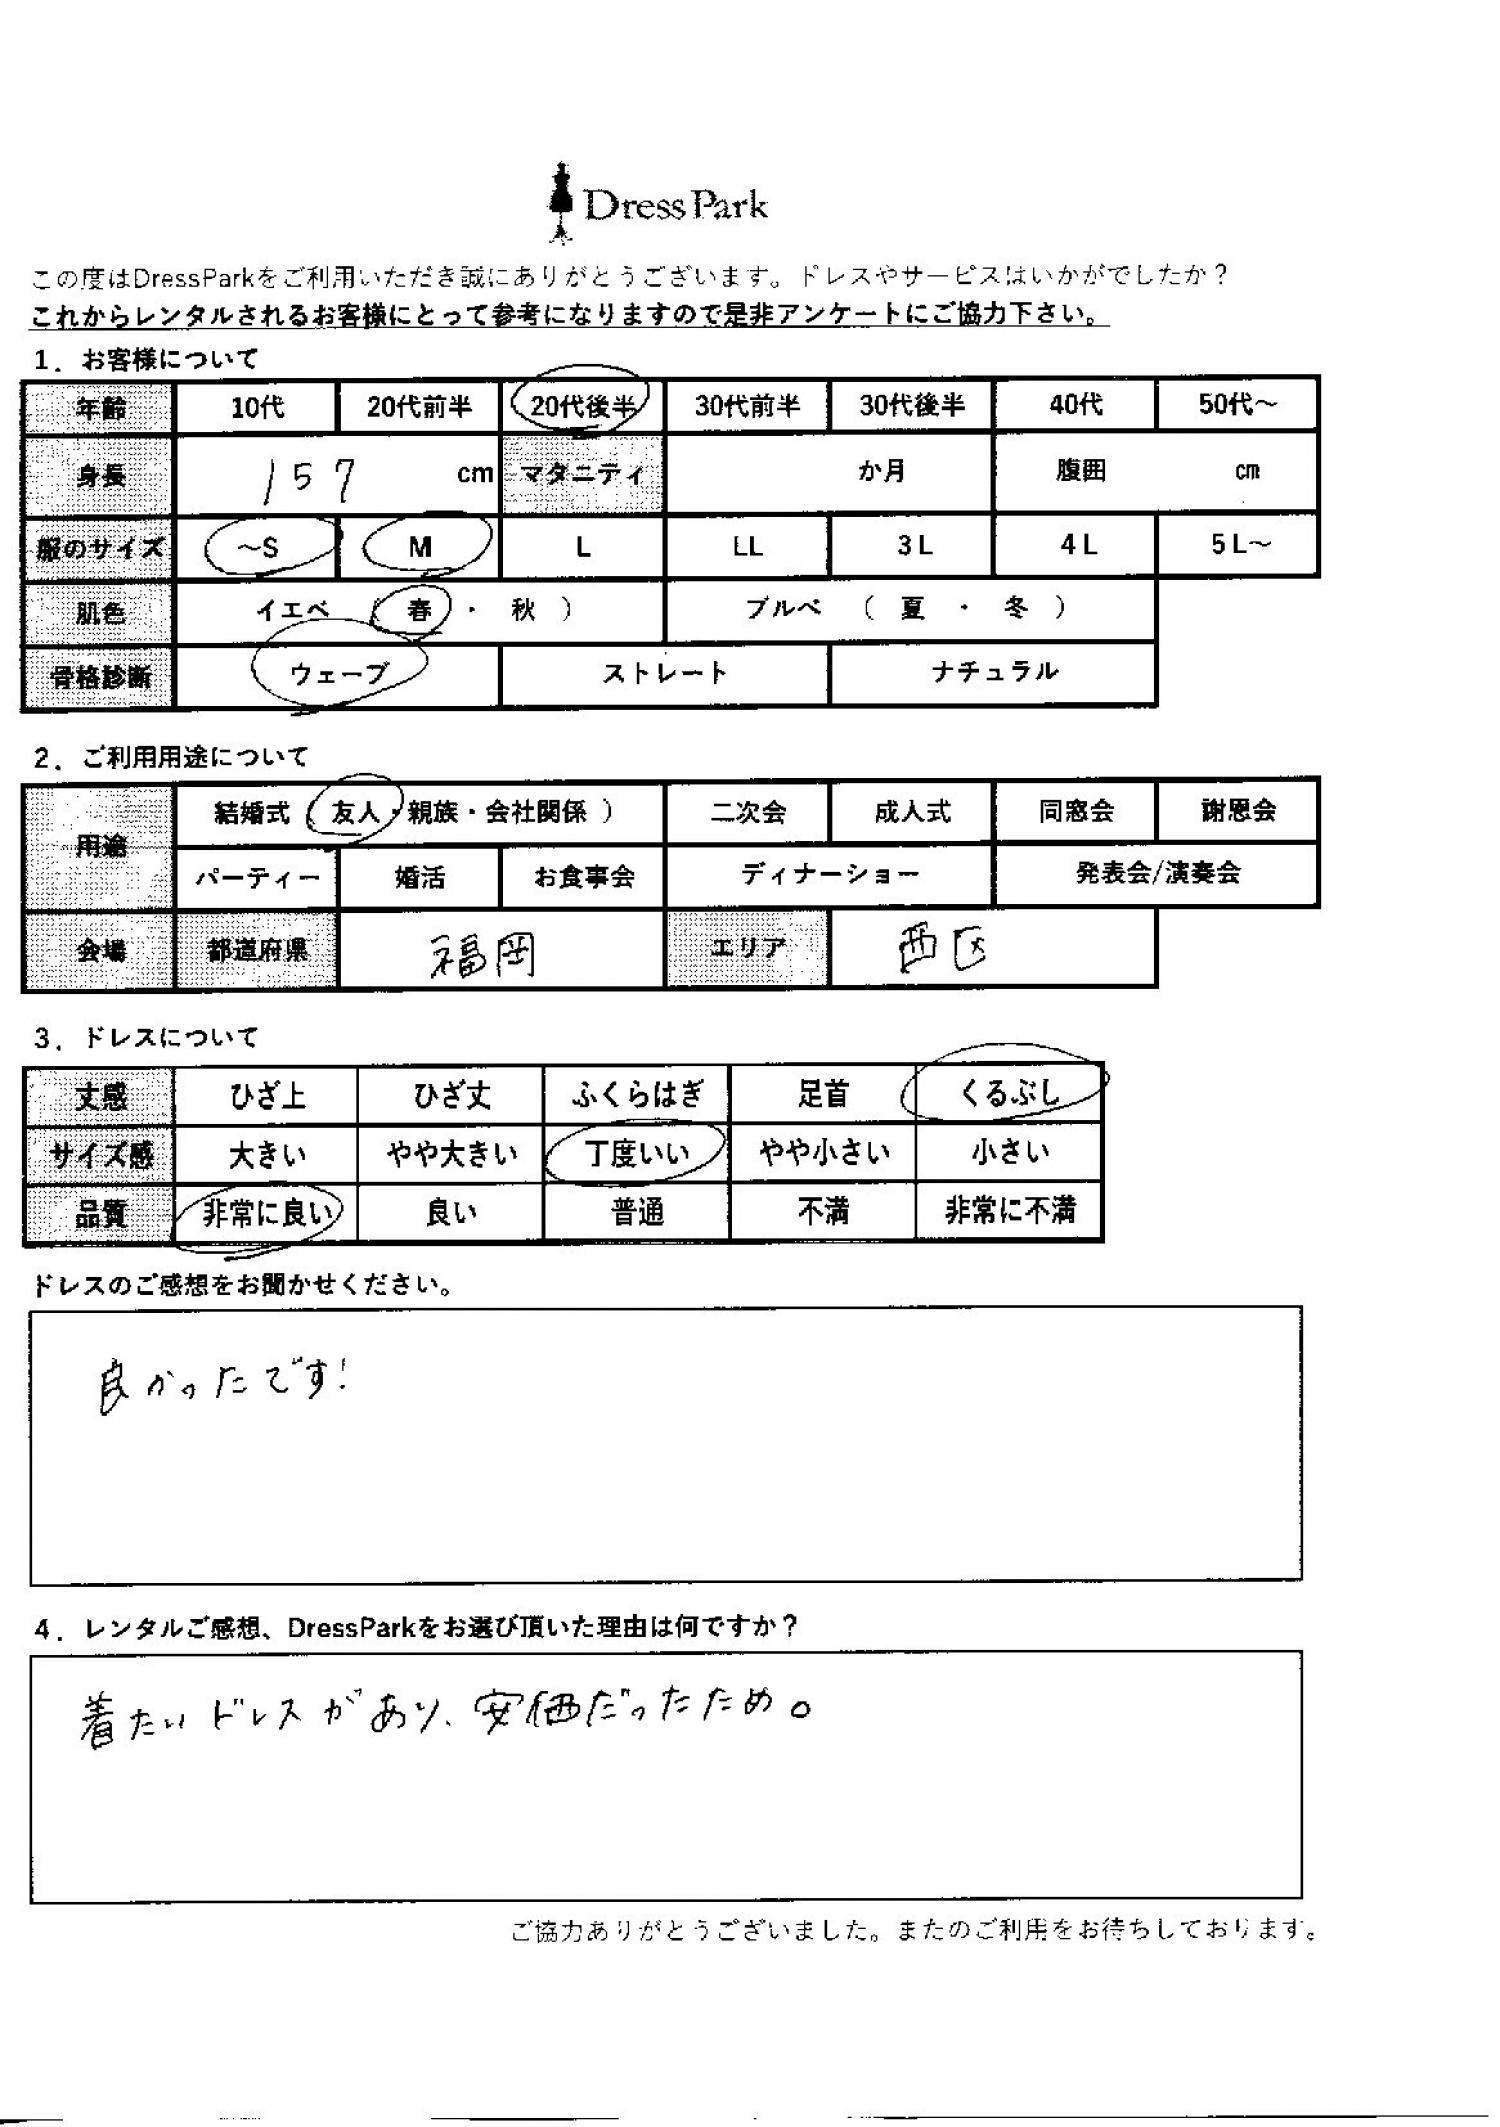 DressPark
この度はDressParkをご利用いただき誠にありがとうございます。ドレスやサービスはいかがでしたか？
これからレンタルされるお客様にとって参考になりますので是非アンケートにご協力下さい。
1．お客様について
年齢 10代 20代前半 20代後半 30代前半 30代後半 40代 50代～
身長 157 cm マタニティ か月 腹囲 cm
服のサイズ ～S M L LL 3L 4L 5L～
肌色 イエベ （ 春 ・ 秋 ） ブルベ （ 夏 ・ 冬 ）
骨格診断 ウェーブ ストレート ナチュラル
2．ご利用用途について
用途 結婚式（ 友人・親族・会社関係 ） 二次会 成人式 同窓会 謝恩会
パーティー 婚活 お食事会 ディナーショー 発表会/演奏会
会場 都道府県 福岡 エリア 西区
3．ドレスについて
丈感 ひざ上 ひざ丈 ふくらはぎ 足首 くるぶし
サイズ感 大きい やや大きい 丁度いい やや小さい 小さい
品質 非常に良い 良い 普通 不満 非常に不満
ドレスのご感想をお聞かせください。
良かったです!
4．レンタルご感想、DressParkをお選び頂いた理由は何ですか？
着たいドレスがあり、安価だったため。
ご協力ありがとうございました。またのご利用をお待ちしております。